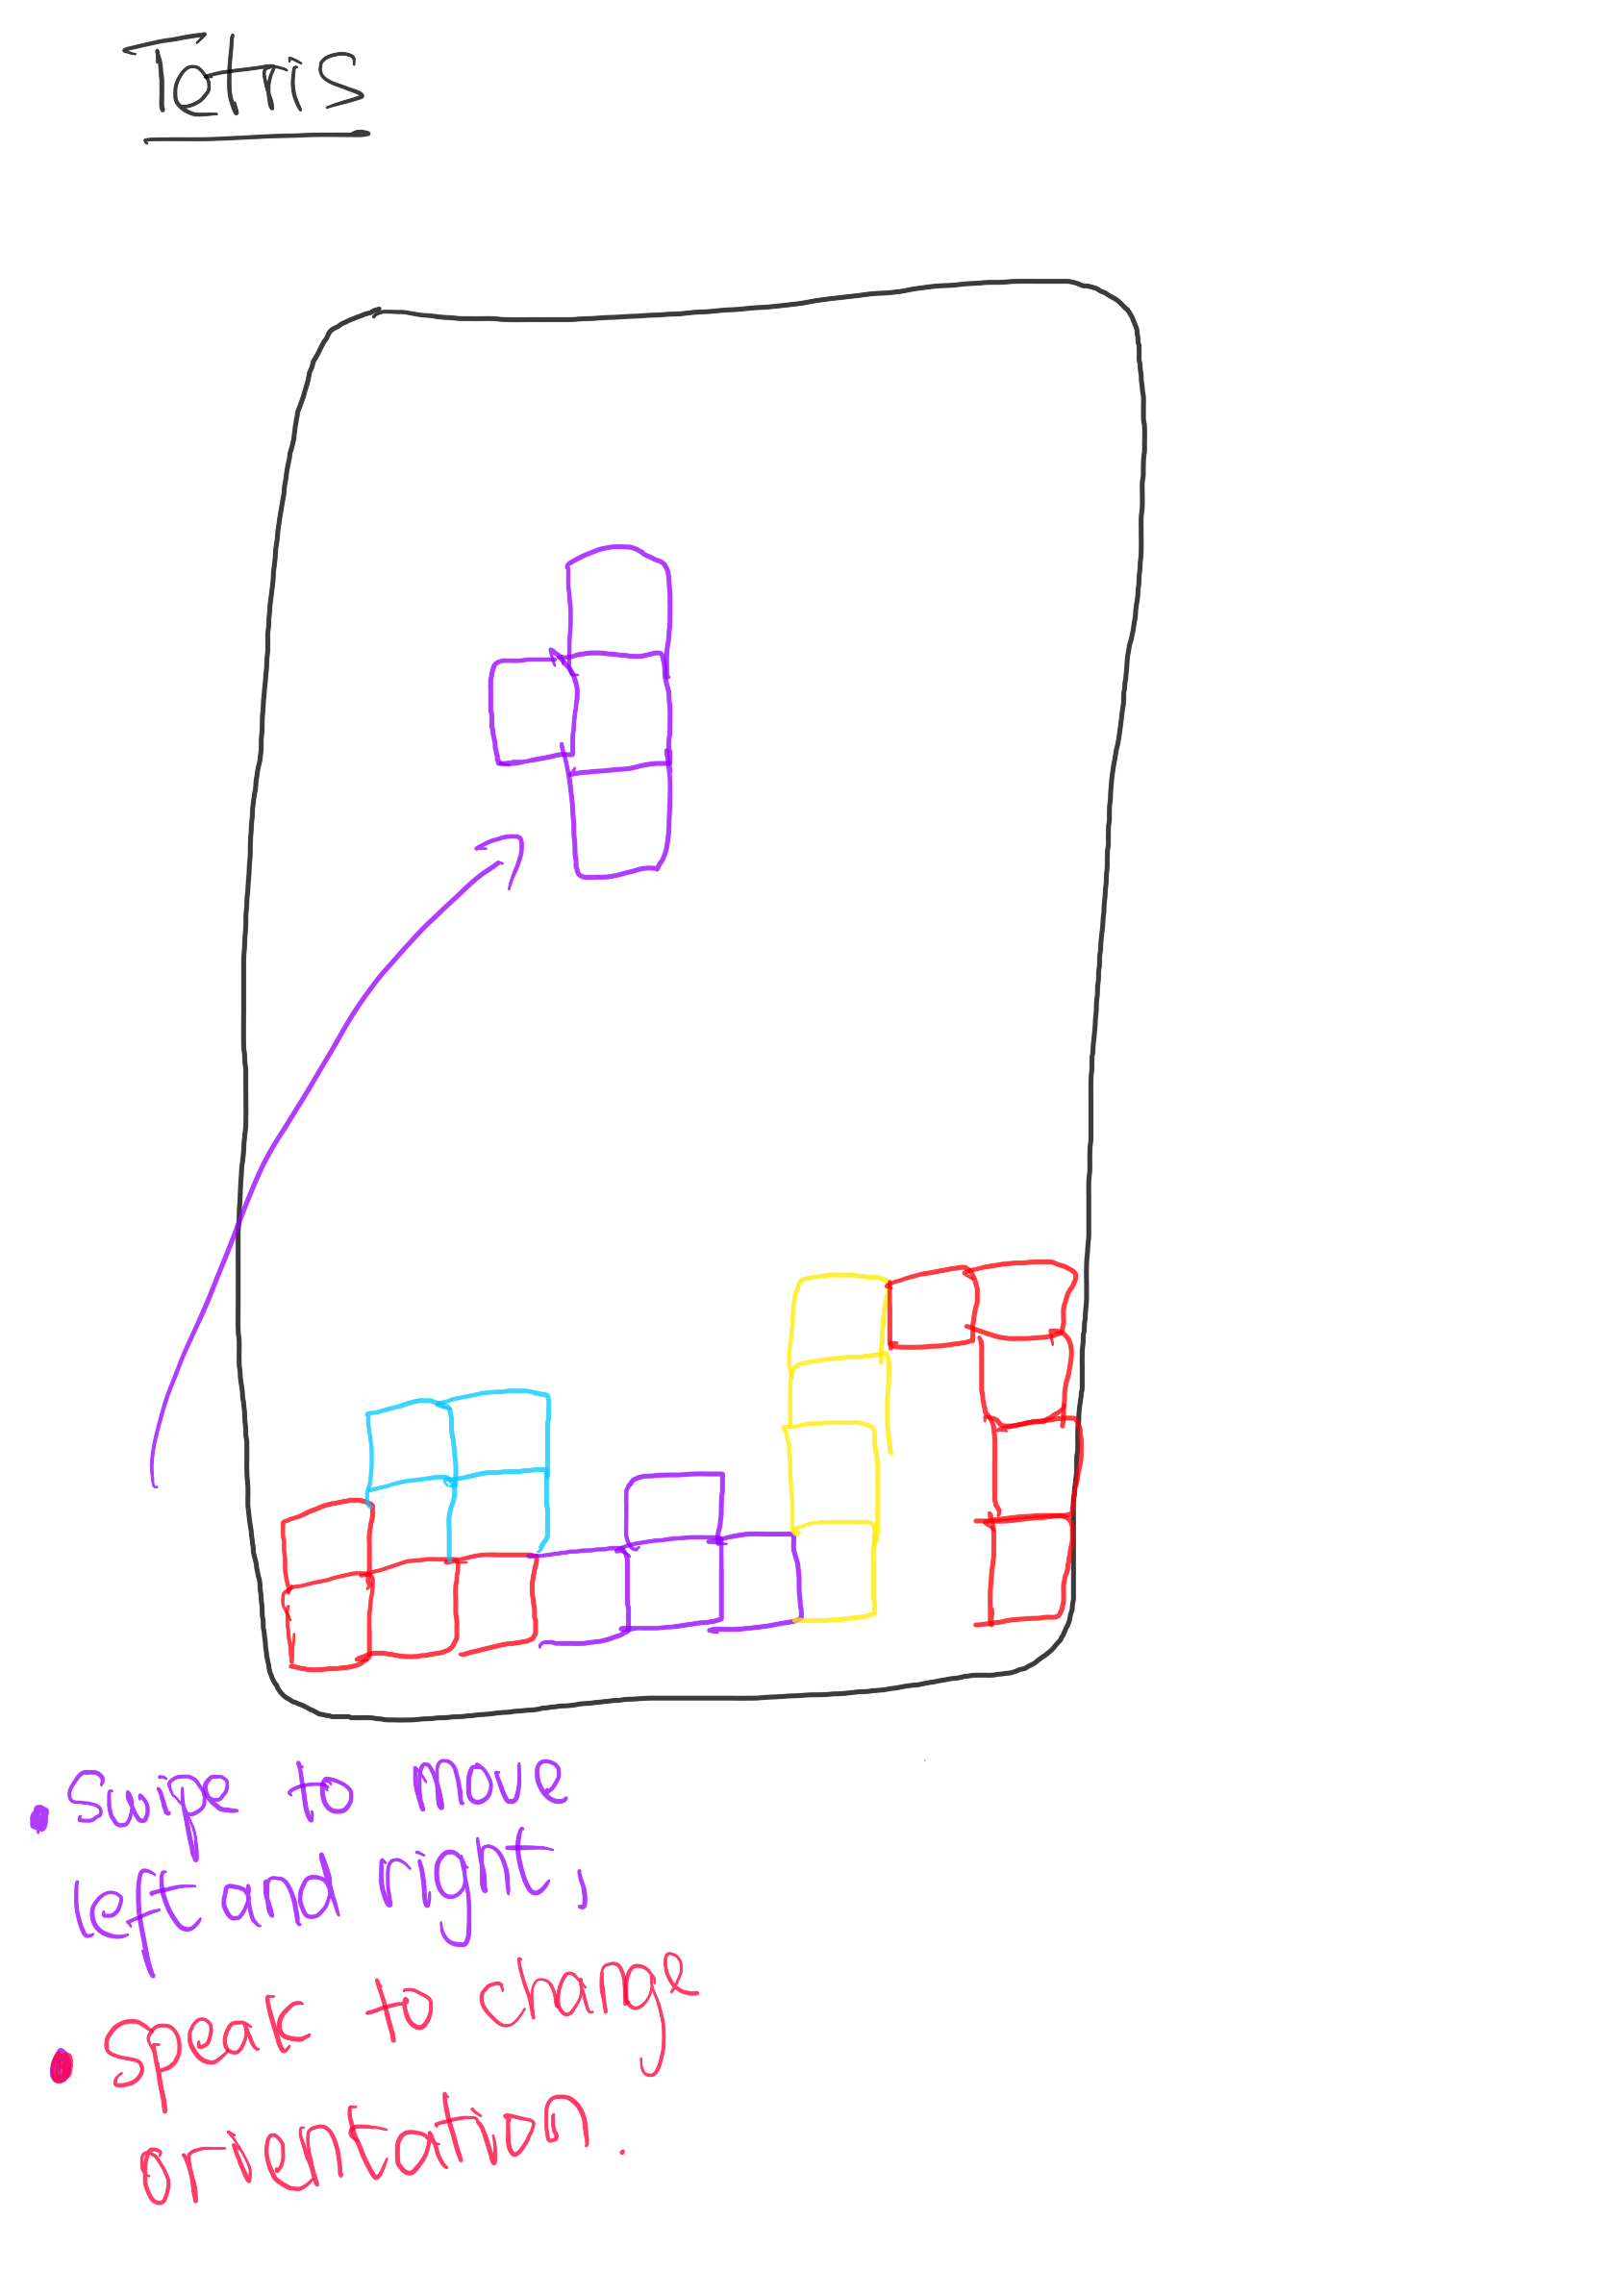 Tetris
• Swipe to move
left and right,
• Speak to change
orientation.